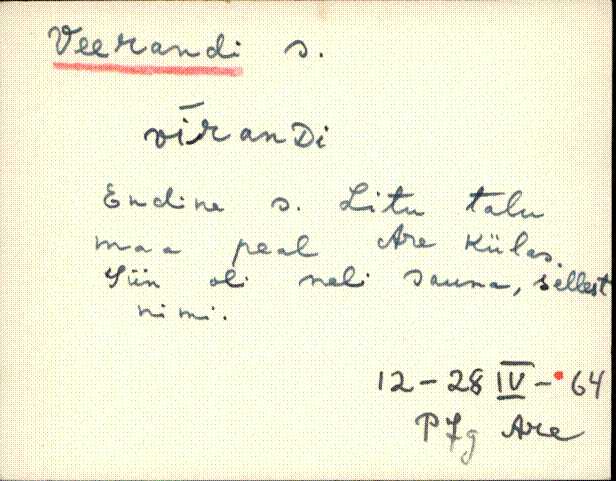 Veerandi s.
vīranDi
Endine s. Litu talu
maa peal Are külas.
Siin oli neli sauna, sellest
nimi.
12-28 IV - 64
PJg Are